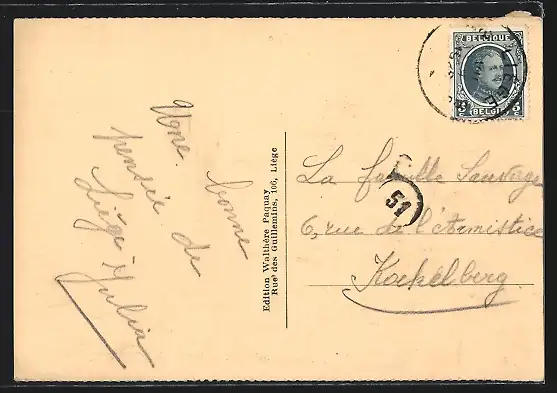 Une bonne
pensée de
Liège
Julia
Edition Walthère Paquay
Rue des Guillemins, 106, Liège
BELGIQUE
5 5
BELGIË
51
La famille Sauvage
6, rue de l'Armistice
Koekelberg